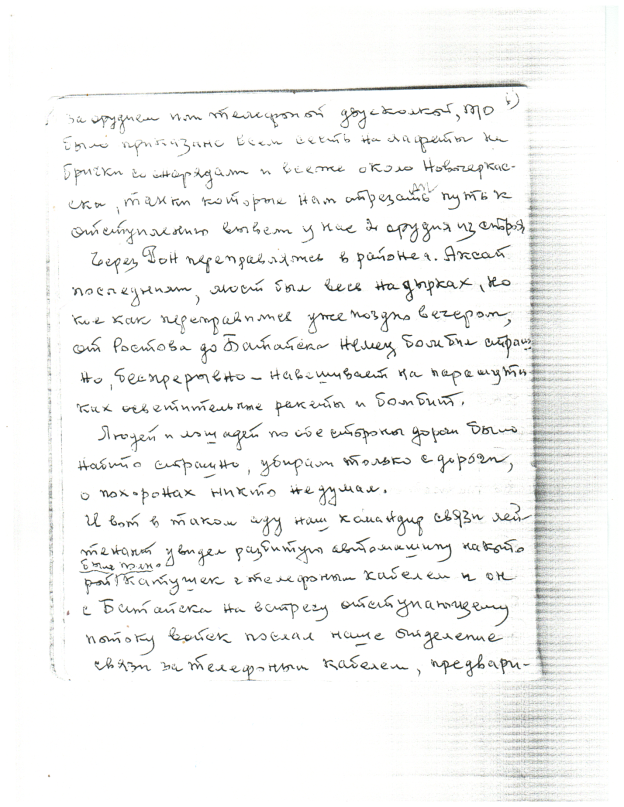 6)
за орудием или телефонной двуколкой, то
было приказано всем сесть на лафеты на
брички со снарядами и все же около Новочеркас-
ска, танки которые нам отрезали путь к
отступлению вывели у нас 2 орудия из строя
Через Дон переправлялись в районе г. Аксай
последними, мост был весь на дырках, но
кое как переправились уже поздно вечером,
от Ростова до Батайска немец бомбил страш
но, беспрерывно – навешивает на парашюти-
ках осветительные ракеты и бомбит.
Людей и лошадей по обе стороны дороги было
набито страшно, убирали только с дороги,
о похоронах никто не думал.
И вот в таком аду наш командир связи лей-
тенант увидел разбитую автомашину на кото
было полно
рой катушек с телефонным кабелем и он
с Батайска на встречу отступающему
потоку войск послал наше отделение
связи за телефонным кабелем, предвари-